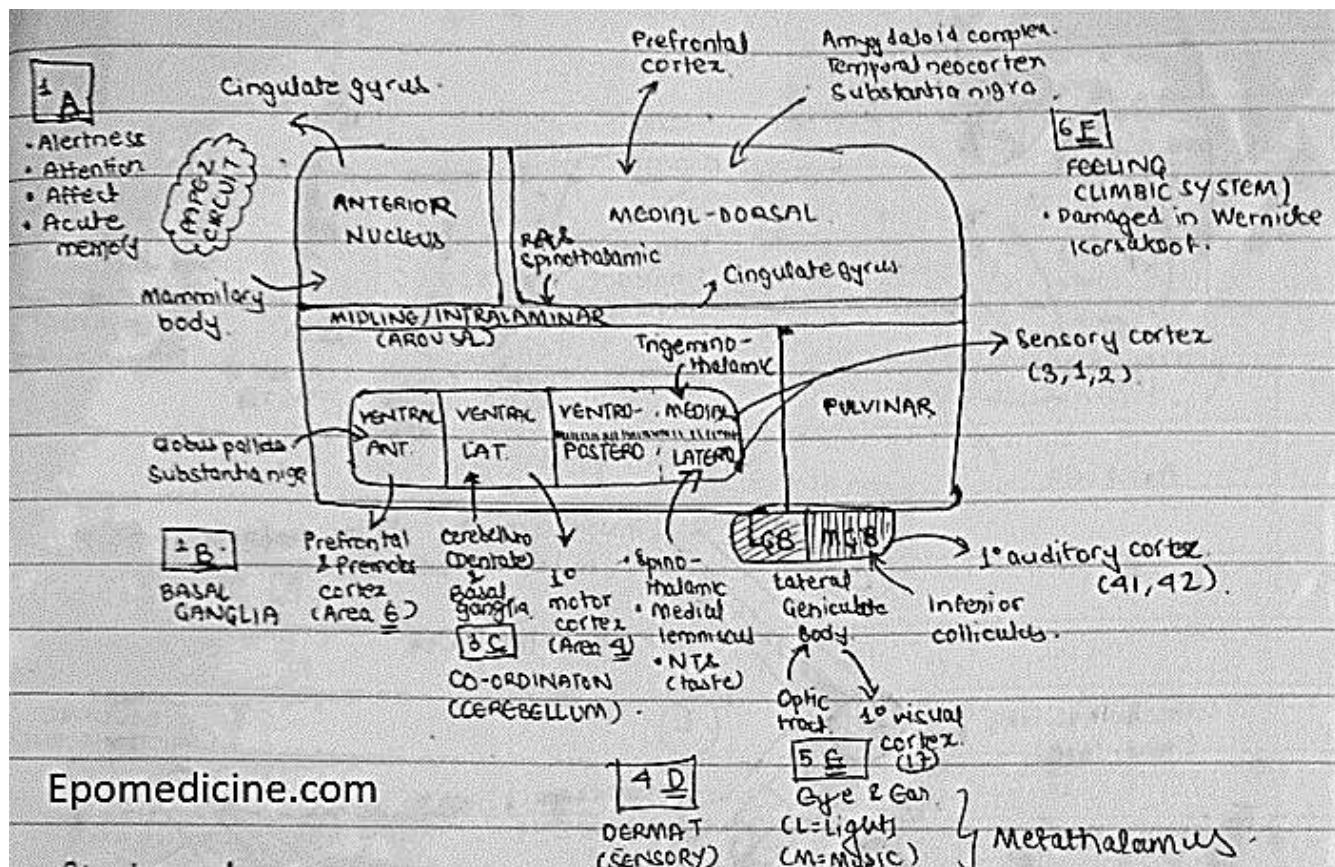 1 A
• Alertness
• Attention
• Affect
• Acute
memory
PAPEZ
CIRCUIT
Cingulate gyrus.
Prefrontal
cortex
Amygdaloid complex.
Temporal neocortex
Substantia nigra
6 F
FEELING
(LIMBIC SYSTEM)
• Damaged in Wernicke
Korsakoof.
ANTERIOR
NUCLEUS
MEDIAL-DORSAL
RAS
Spinothalamic
Cingulate Gyrus
Mammilary
body.
MIDLINE/INTRALAMINAR
(AROUSAL)
Trigemino-
thalamic
Sensory cortex
(3,1,2).
VENTRAL
ANT.
VENTRAL
LAT.
VENTRO-
POSTERO
MEDIAL
LATERO
PULVINAR
Globus pallidus
Substantia nigra
LGB
MGB
2 B
BASAL
GANGLIA
Prefrontal
& Premotor
cortex
(Area 6)
Cerebellum
(Dentate)
&
Basal
ganglia.
3 C
CO-ORDINATON
(CEREBELLUM).
1°
motor
cortex
(Area 4)
• Spino-
thalamic
• Medial
lemniscus
• NTS
(taste)
Lateral
Geniculate
Body.
Inferior
colliculus.
1° auditory cortex.
(41, 42)
Optic
tract.
1° visual
cortex.
(17)
4 D
DERMAT
(SENSORY)
5 E
Eye & Ear.
(L=Light)
(M=MUSIC)
Metathalamus.
Epomedicine.com